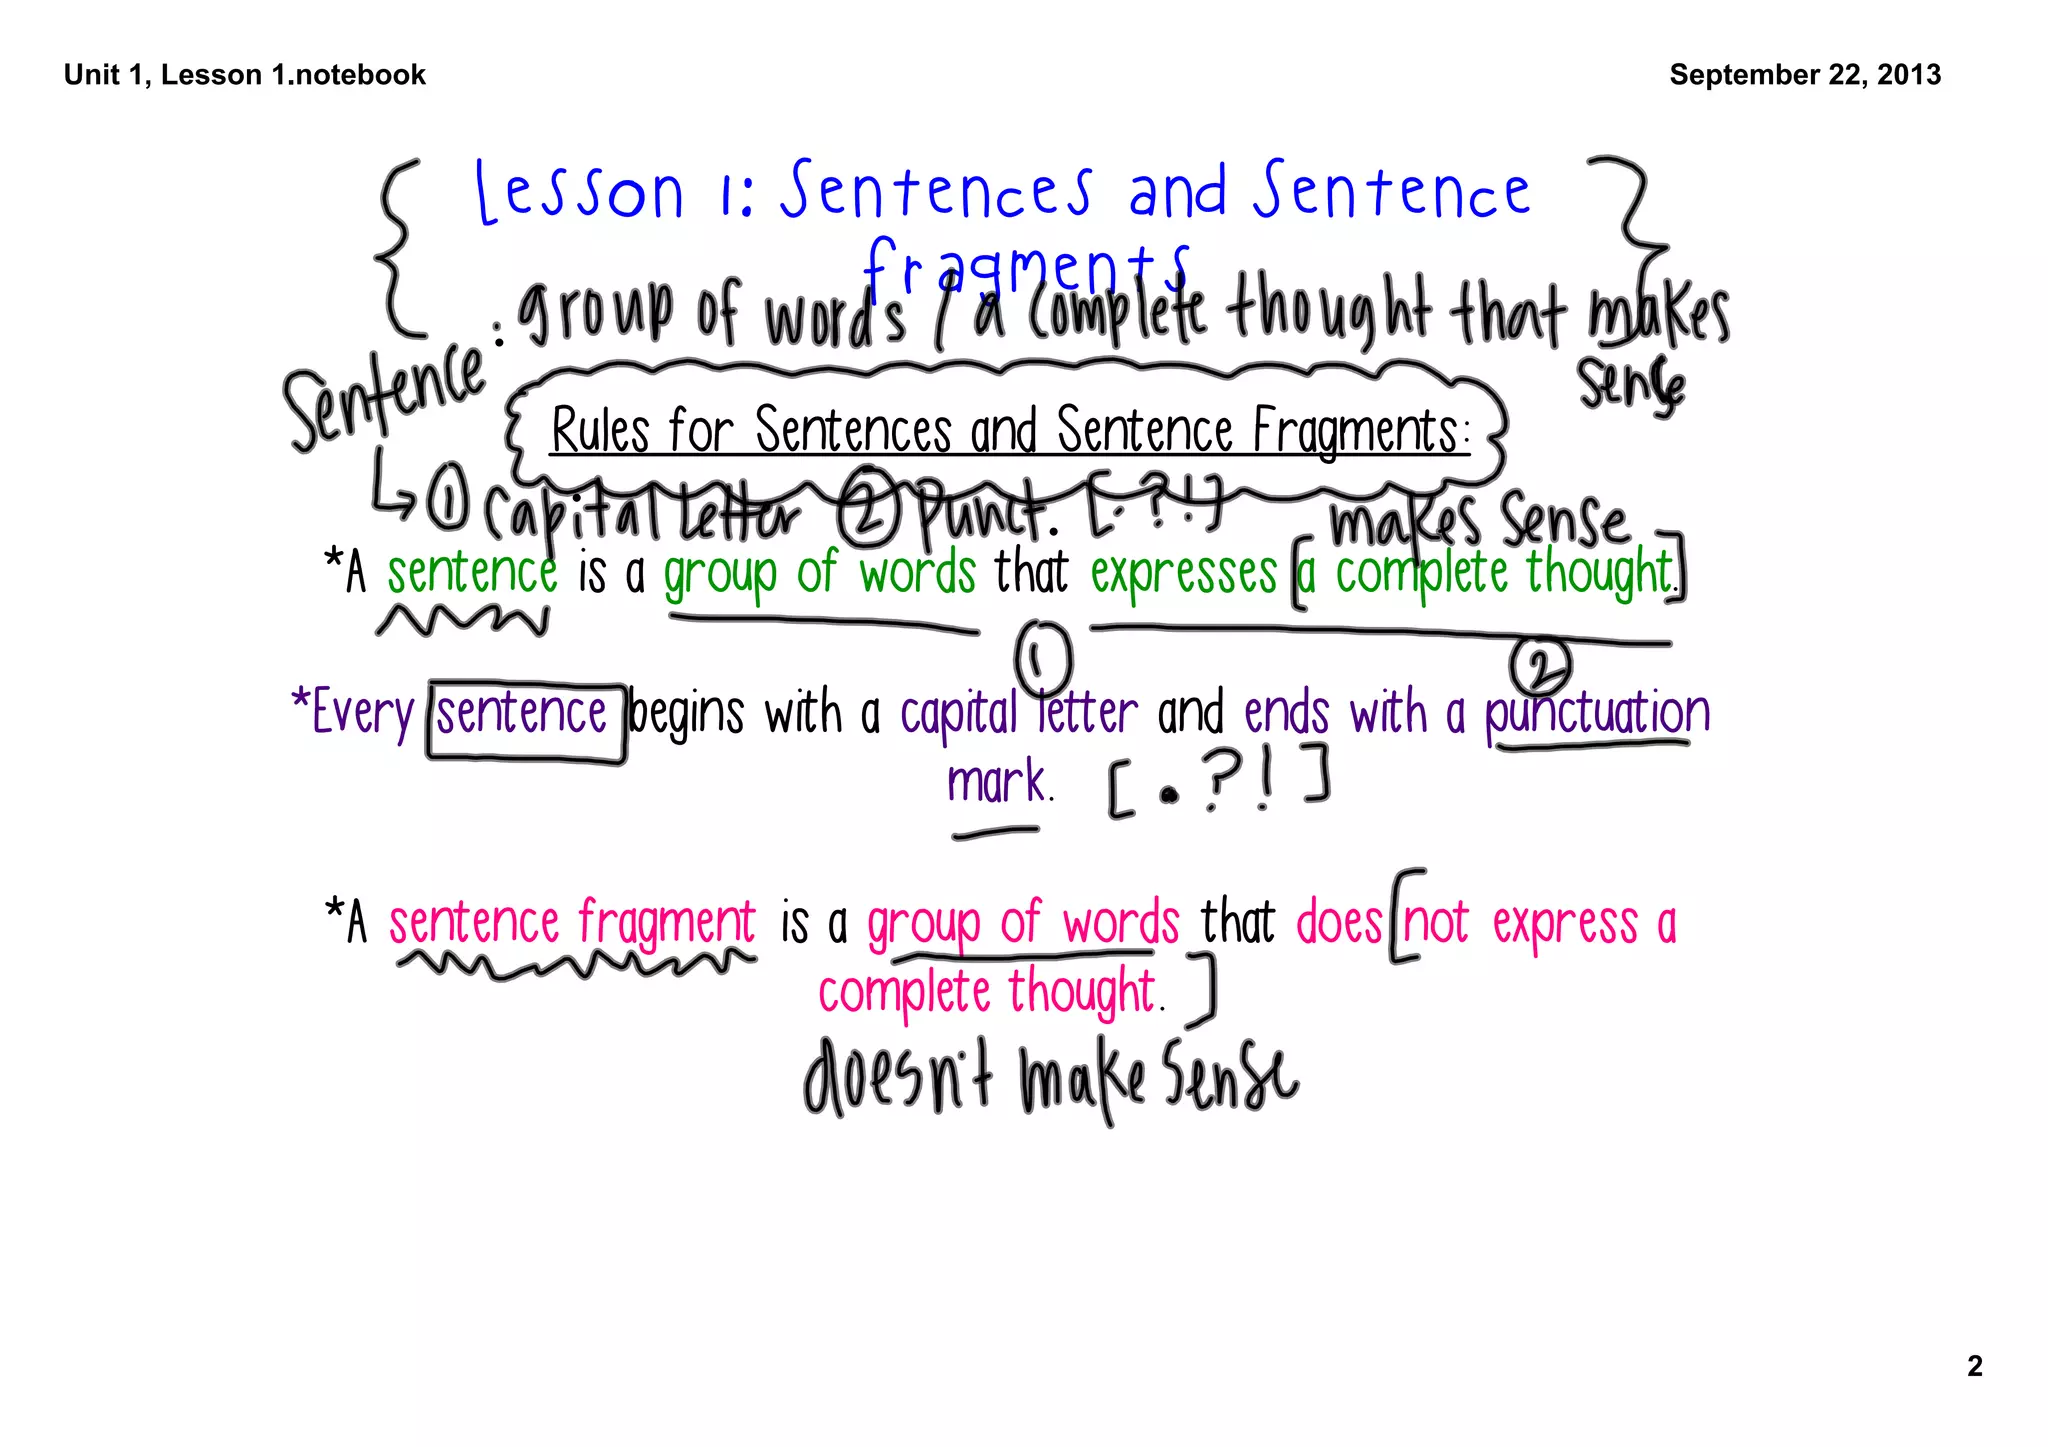 Unit 1, Lesson 1.notebook
September 22, 2013
Lesson 1: Sentences and Sentence
fragments
Sentence: group of words / a complete thought that makes
sense
Rules for Sentences and Sentence Fragments:
↳ ① Capital letter ② Punct. [.?!] makes sense
*A sentence is a group of words that expresses [a complete thought.]
① ②
*Every sentence begins with a capital letter and ends with a punctuation
mark. [.?!]
*A sentence fragment is a group of words that does [not express a
complete thought.]
doesn't make sense
2